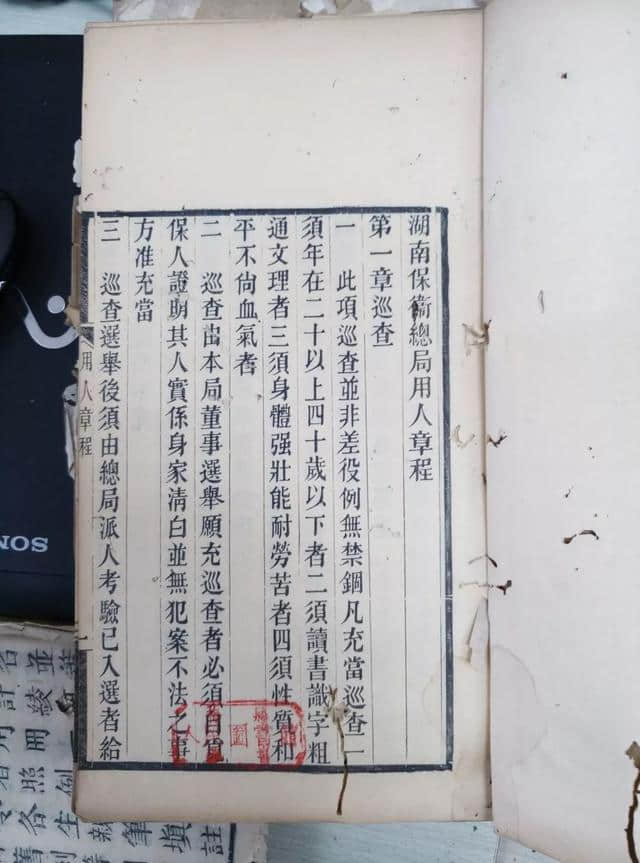 湖南保衞總局用人章程
第一章巡查
一 此項巡查並非差役例無禁錮凡充當巡查一
須年在二十以上四十歲以下者二須讀書識字粗
通文理者三須身體强壯能耐勞苦者四須性質和
平不尙血氣者
二 巡查由本局董事選舉願充巡查者必須自覓
保人證明其人實係身家清白並無犯案不法之事
方准充當
三 巡查選舉後須由總局派人考驗已入選者給
用人章程
一
SONY